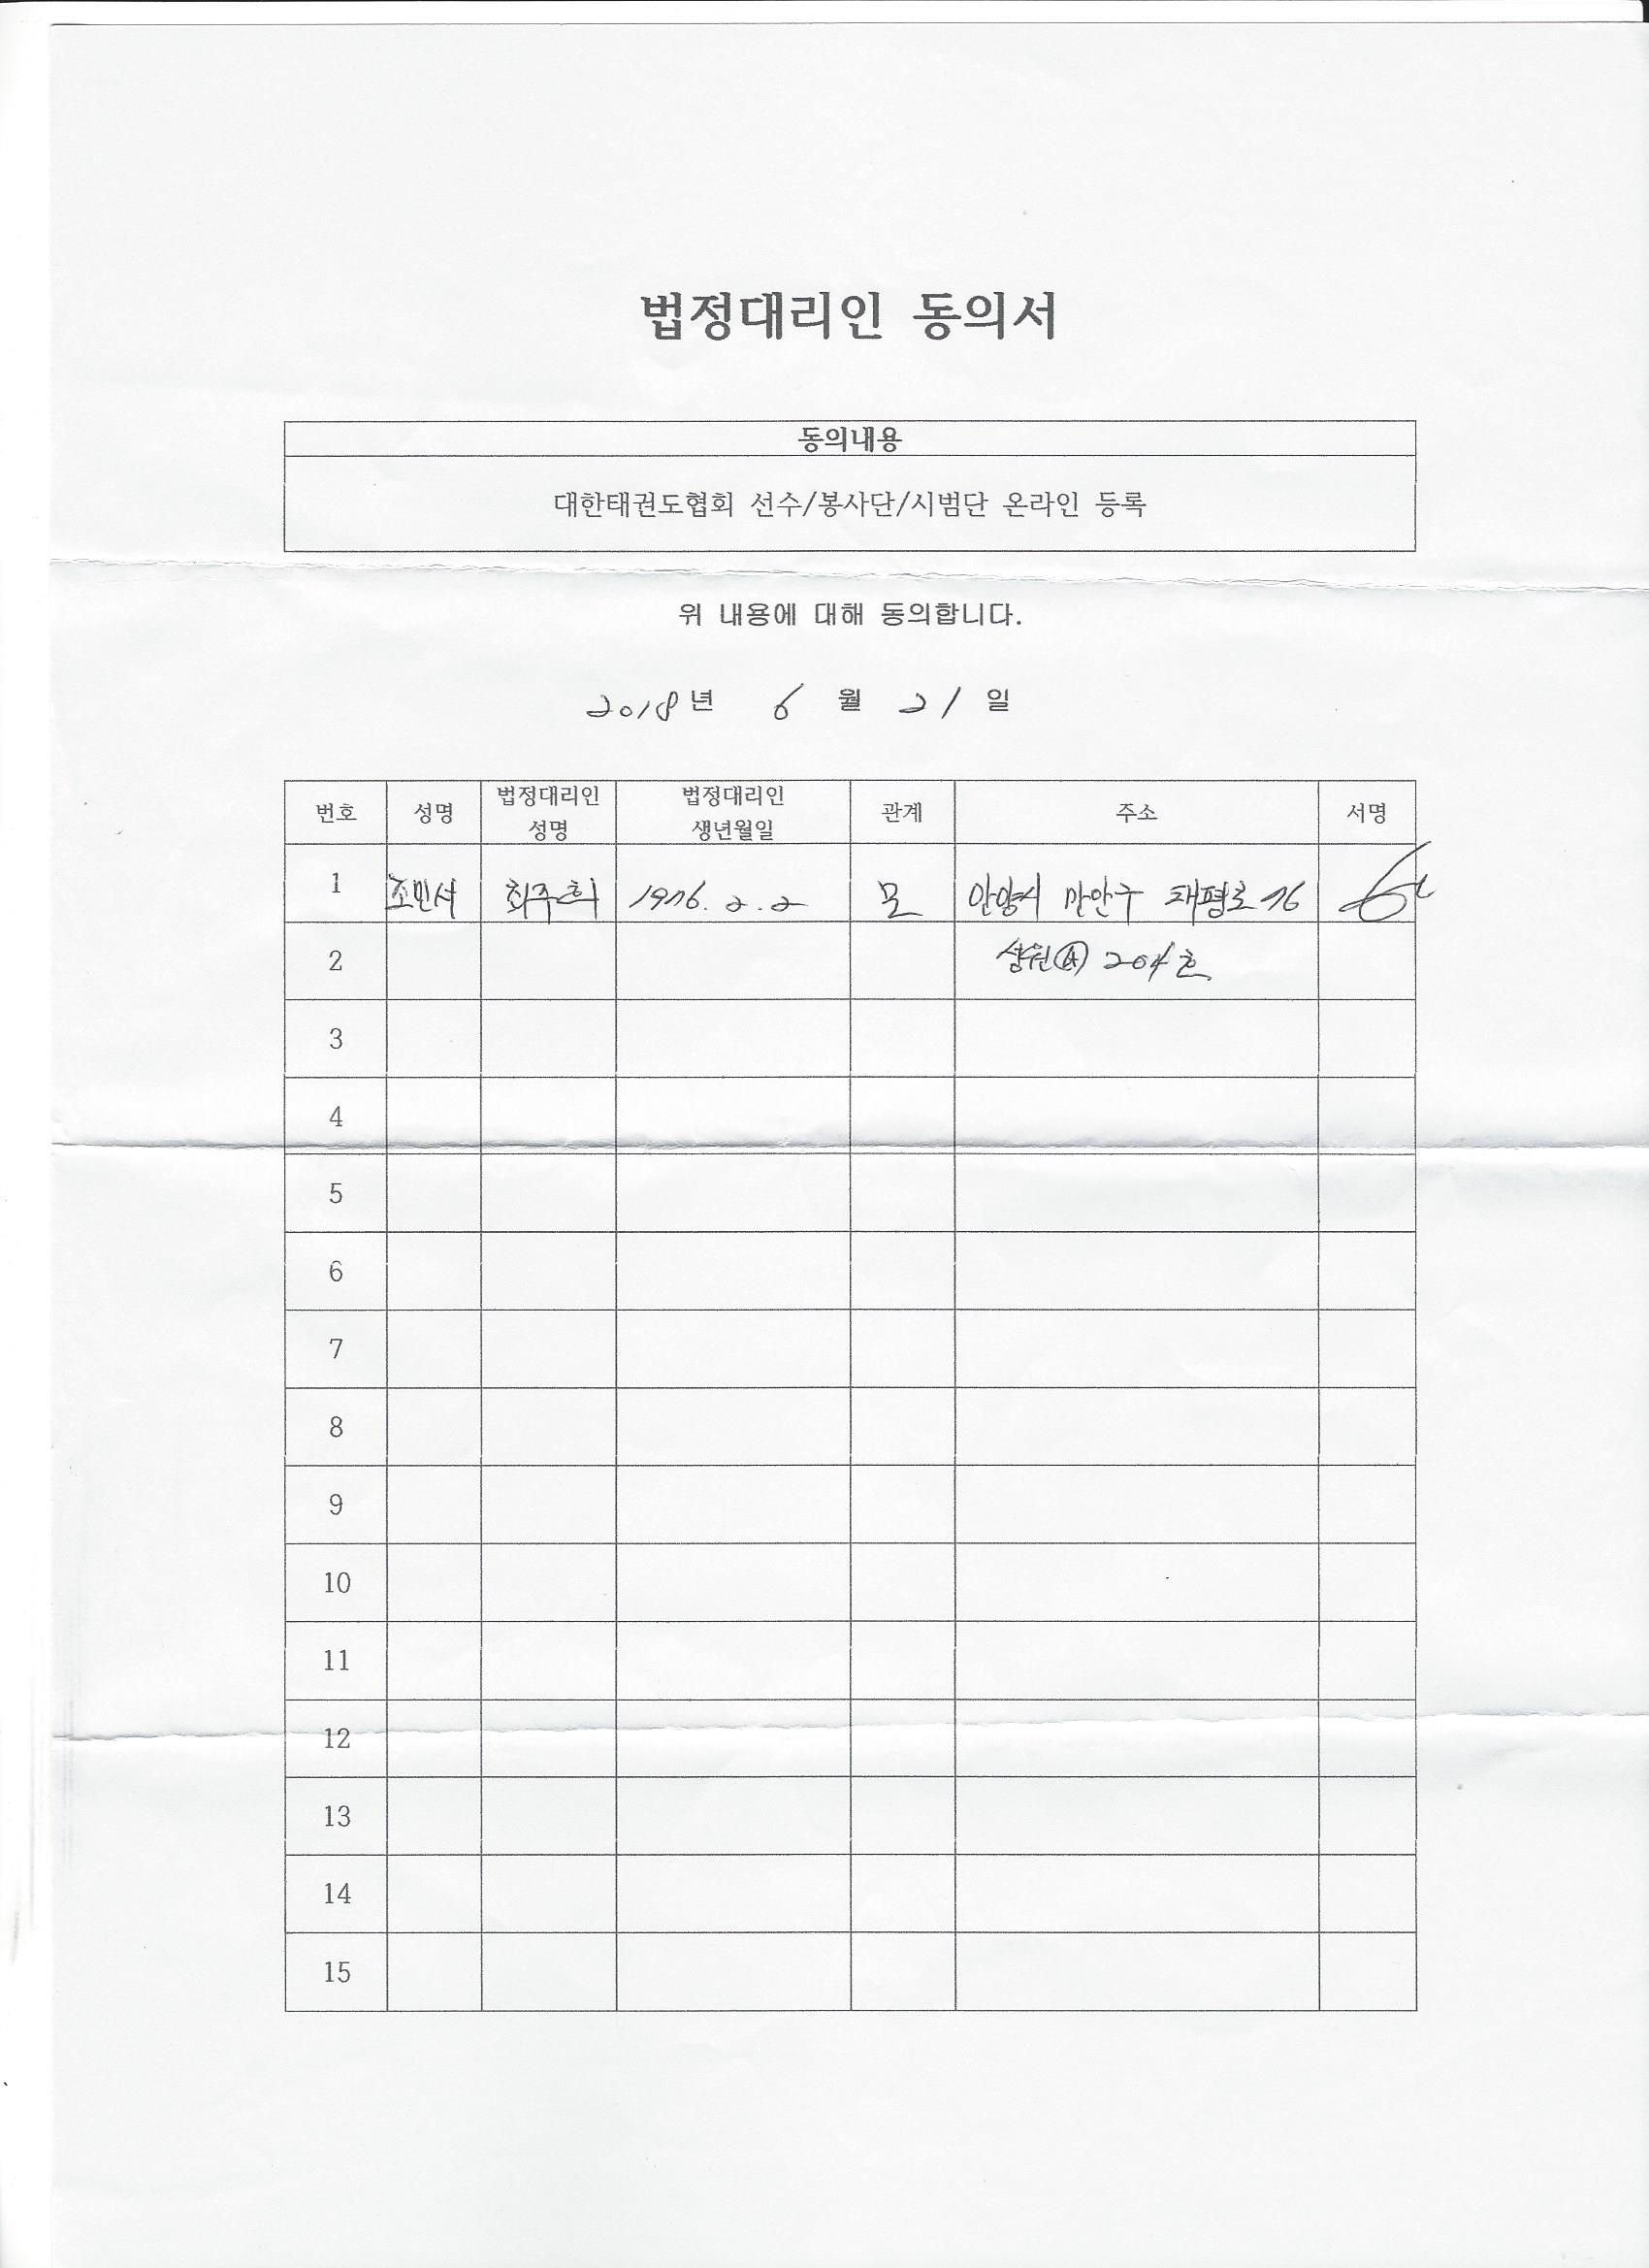 법정대리인 동의서
동의내용
대한태권도협회 선수/봉사단/시범단 온라인 등록
위 내용에 대해 동의합니다.
2018년 6 월 21 일
번호 성명 법정대리인 성명 법정대리인 생년월일 관계 주소 서명
1 조민서 최주희 1976. 2. 2 모 안양시 만안구 태평로 76
2 상원Ⓐ 204호
3
4
5
6
7
8
9
10
11
12
13
14
15